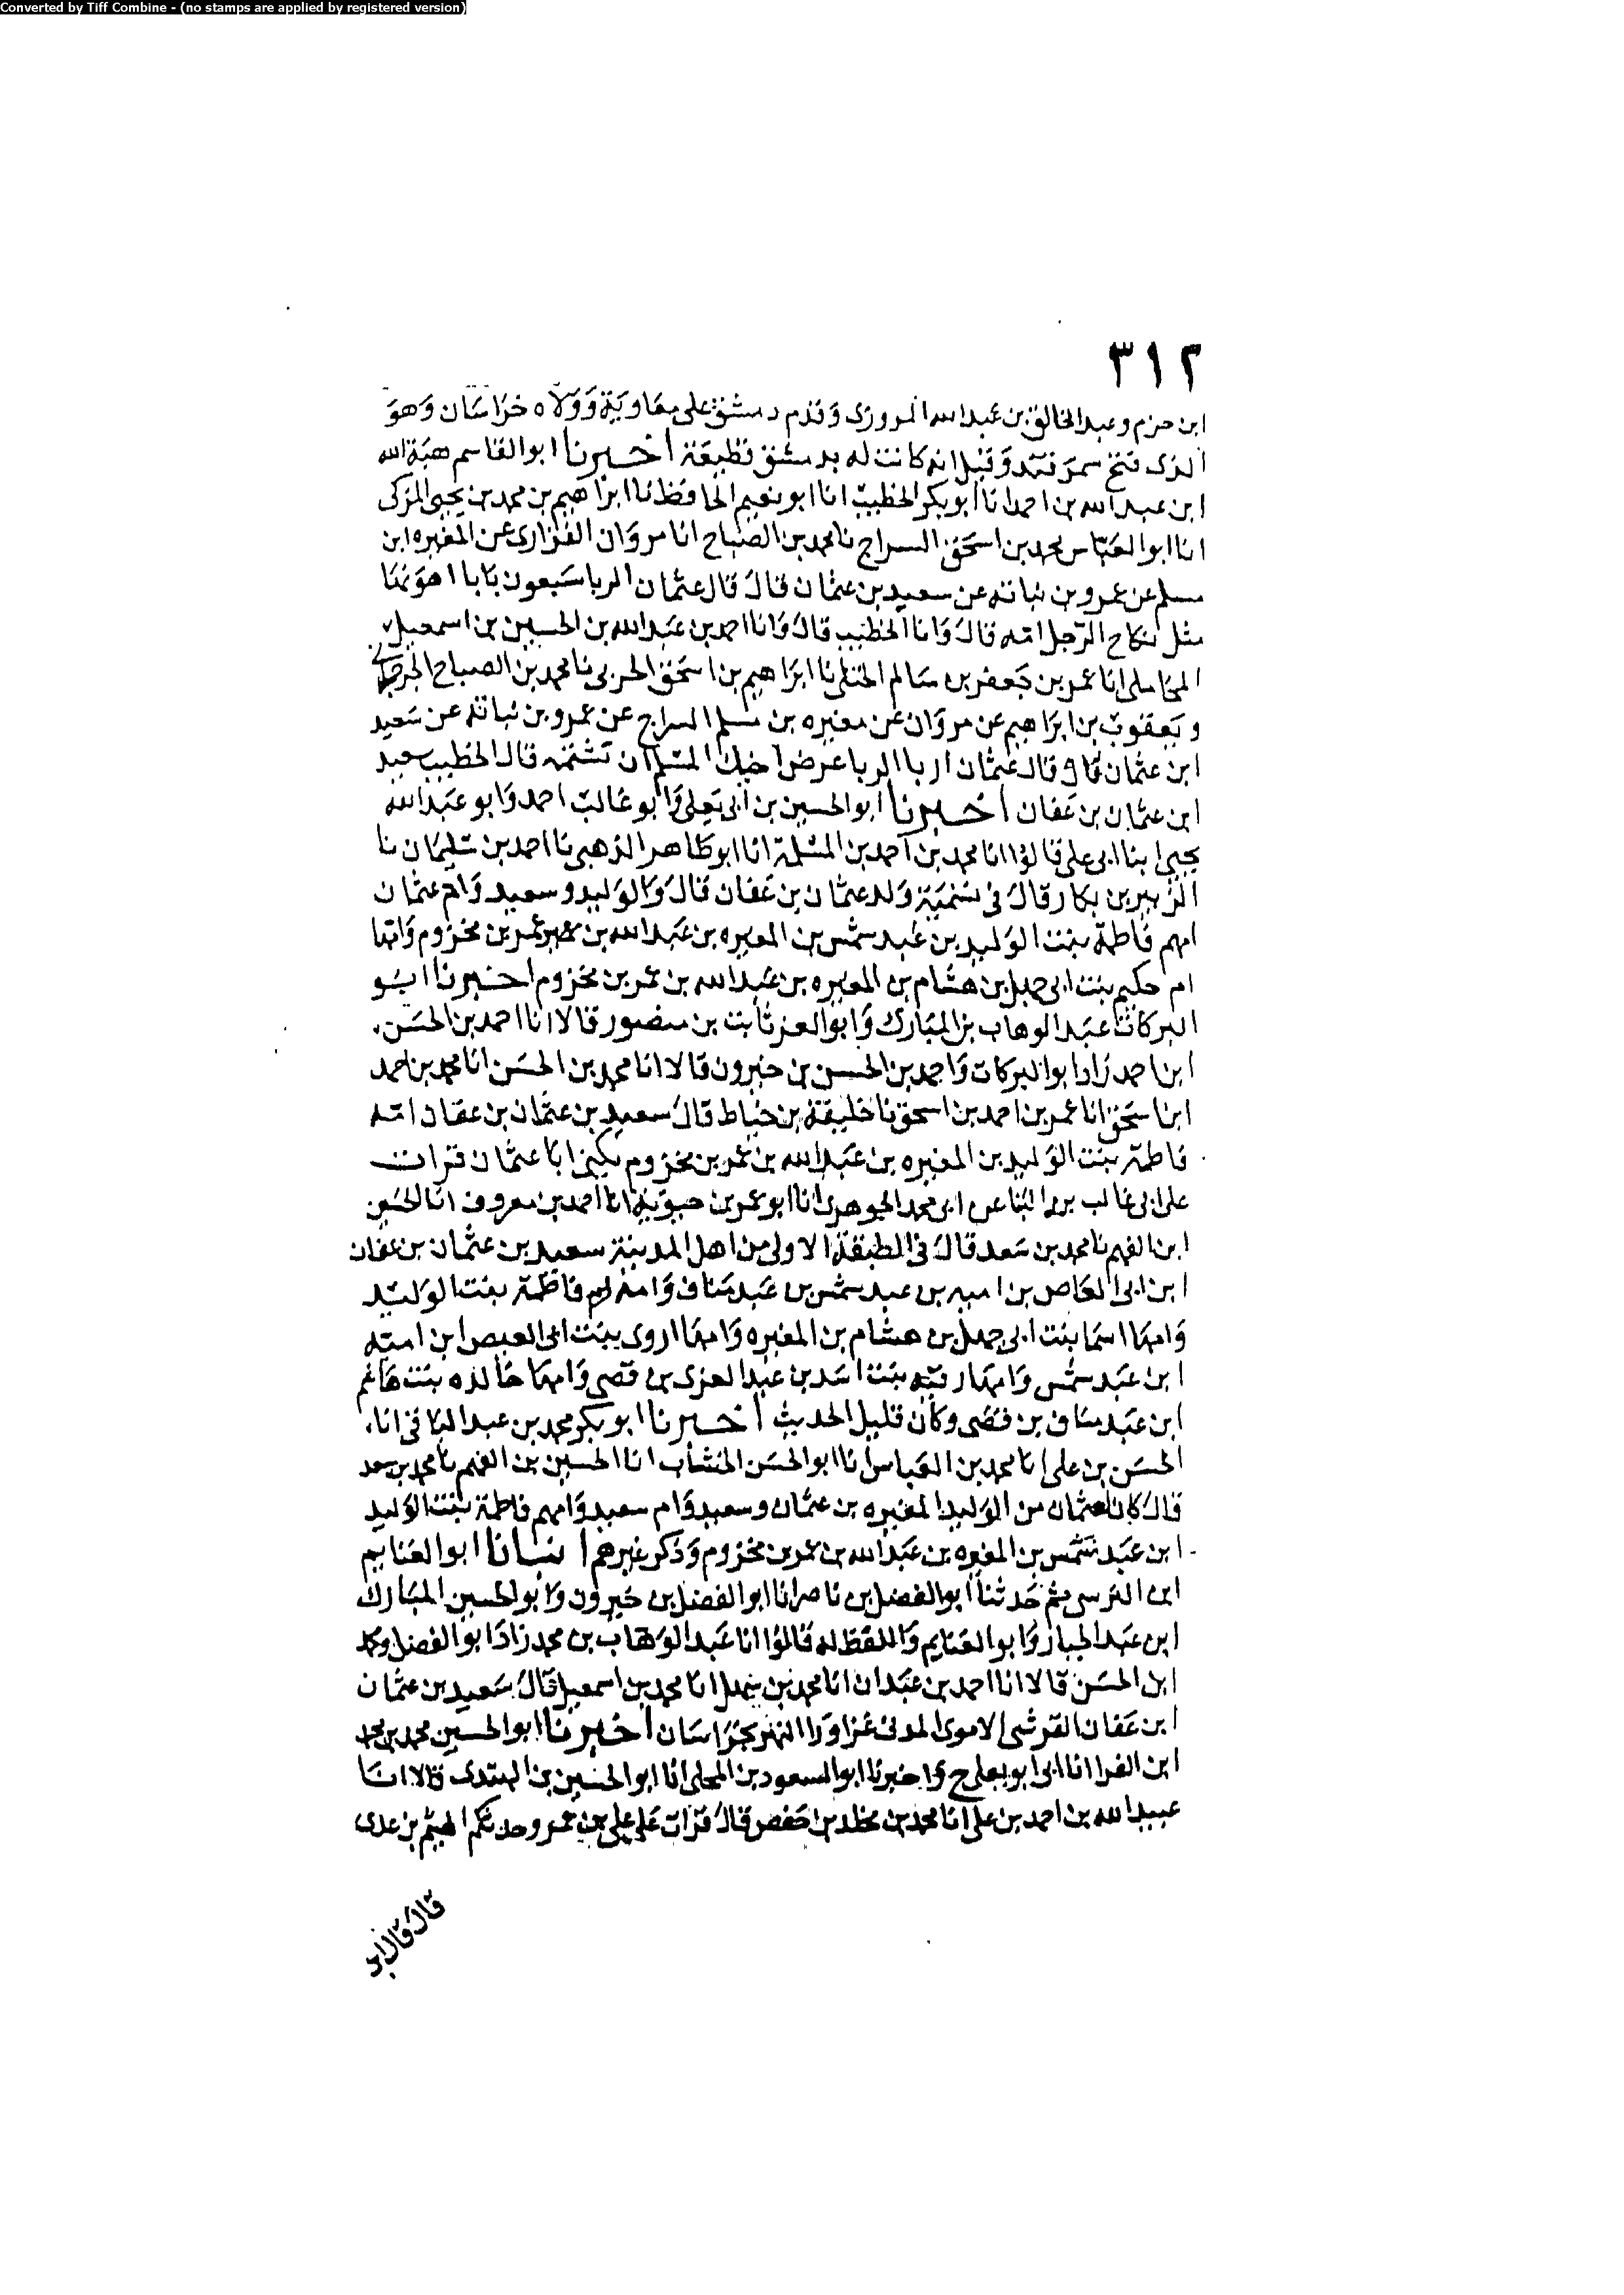 Converted by Tiff Combine - (no stamps are applied by registered version)
٣١٢
ابن حزم وعبد الخالق بن عبد الله المروزى وقدم دمشق على معاوية وولاه خراسان وهو
الذى فتح سمرقند وقيل انه كانت له بدمشق قطيعة اخبرنا ابو القاسم هبة الله
ابن عبد الله بن احمد انا ابو بكر الخطيب انا ابو نعيم الحافظ نا ابراهيم بن محمد بن يحيى المزكى
انا ابو العباس محمد بن اسحق السراج نا محمد بن الصباح انا مروان الفزارى عن المغيره ابن
مسلم عن عمرو بن نباته عن سعيد بن عثمان قال قال عثمان الربا سبعون بابا اهونها
مثل نكاح الرجل امه قال وانا الخطيب قال وانا احمد بن عبد الله بن الحسين بن اسمعيل
المحاملى انا عمر بن جعفر بن سالم الختلى نا ابراهيم بن اسحق الحربى نا محمد بن الصباح الجرجرائى
ويعقوب بن ابراهيم عن مروان عن مغيره بن مسلم السراج عن عمرو بن نباته عن سعيد
ابن عثمان قال قال عثمان اربا الربا عرض اخيك المسلم ان تشتمه قال الخطيب سعيد
ابن عثمان بن عفان اخبرنا ابو الحسين بن ابى يعلى وابو غالب احمد وابو عبد الله
يحيى ابنا ابى على قالوا انا محمد بن احمد بن المسلمة انا ابو طاهر الذهبى نا احمد بن سليمان نا
الزبير بن بكار قال فى تسمية ولد عثمان بن عفان قال والوليد وسعيد وام عثمان
امهم فاطمة بنت الوليد بن عبد شمس بن المغيره بن عبد الله بن عمر بن مخزوم وامها
ام حكيم بنت ابى جهل بن هشام بن المغيره بن عبد الله بن عمر بن مخزوم اخبرنا ابو
البركات عبد الوهاب بن المبارك وابو العز ثابت بن منصور قالا انا احمد بن الحسن
ابن احمد زاد ابو البركات واحمد بن الحسن بن خيرون قالا انا محمد بن الحسن انا محمد بن احمد
ابن اسحق انا عمر بن احمد بن اسحق نا خليفة بن خياط قال سعيد بن عثمان بن عفان امه
فاطمة بنت الوليد بن المغيره بن عبد الله بن عمر بن مخزوم يكنى ابا عثمان قرات
على ابى غالب بن البنا عن ابى محمد الجوهرى انا ابو عمر بن حيوية انا احمد بن معروف انا الحسين
ابن الفهم نا محمد بن سعد قال فى الطبقة الاولى من اهل المدينة سعيد بن عثمان بن عفان
ابن ابى العاص بن اميه بن عبد شمس بن عبد مناف وامه فاطمة بنت الوليد
وامها اسما بنت ابى جهل بن هشام بن المغيره وامها اروى بنت ابى العيص ابن اميه
ابن عبد شمس وامها رقيه بنت اسد بن عبد العزى بن قصى وامها خالده بنت هاشم
ابن عبد مناف بن قصى وكان قليل الحديث اخبرنا ابو بكر محمد بن عبد الباقى انا
الحسن بن على انا محمد بن العباس انا ابو الحسن الخشاب انا الحسين بن الفهم نا محمد بن سعد
قال كان لعثمان من الولد المغيره بن عثمان وسعيد وام سعيد وامهم فاطمة بنت الوليد
ابن عبد شمس بن المغيره بن عبد الله بن عمر بن مخزوم وذكر غيرهم انبانا ابو الغنايم
ابن النرسى ثم حدثنا ابو الفضل بن ناصر انا ابو الفضل بن خيرون وابو الحسين المبارك
ابن عبد الجبار وابو الغنايم واللفظ له قالوا انا عبد الوهاب بن محمد زاد ابو الفضل ومحمد
ابن الحسن قالا انا احمد بن عبدان انا محمد بن سهل انا محمد بن اسمعيل قال سعيد بن عثمان
ابن عفان القرشى الاموى المدنى غزا ورا النهر بخراسان اخبرنا ابو الحسين محمد بن محمد
ابن الفرا انا ابى ابو يعلى ح واخبرنا ابو السعود بن المجلى انا ابو الحسين بن المهتدى قالا انا
عبيد الله بن احمد بن على انا محمد بن مخلد بن حفص قال قرات على على بن عمرو حدثكم الهيثم بن عدى
قال قال ابن